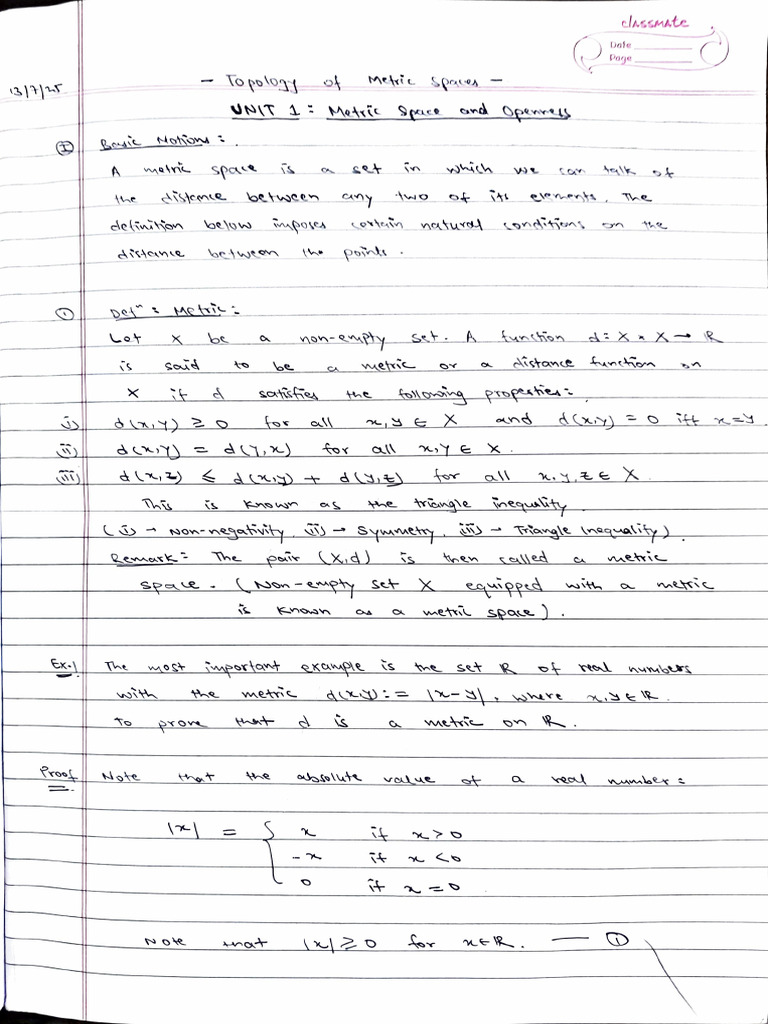 classmate
Date
Page
13/7/25
- Topology of Metric Spaces -
UNIT 1 : Metric Space and Openness
Ⓘ Basic Notions :
A metric space is a set in which we can talk of
the distance between any two of its elements. The
definition below imposes certain natural conditions on the
distance between the points.
① Defⁿ : Metric :
Let X be a non-empty set. A function d : X × X → R
is said to be a metric or a distance function on
X if d satisfies the following properties :
i) d(x,y) ≥ 0 for all x,y ∈ X and d(x,y) = 0 iff x=y.
ii) d(x,y) = d(y,x) for all x,y ∈ X.
iii) d(x,z) ≤ d(x,y) + d(y,z) for all x,y,z ∈ X.
This is known as the triangle inequality.
(i) → Non-negativity, ii) → Symmetry, iii) → Triangle Inequality).
Remark : The pair (X,d) is then called a metric
space. (Non-empty set X equipped with a metric
is known as a metric space).
Ex.1 The most important example is the set ℝ of real numbers
with the metric d(x,y) := |x-y|, where x,y ∈ ℝ.
To prove that d is a metric on ℝ.
Proof Note that the absolute value of a real number :
|x| = { x if x > 0
-x if x < 0
0 if x = 0.
Note that |x| ≥ 0 for x ∈ ℝ. — ①